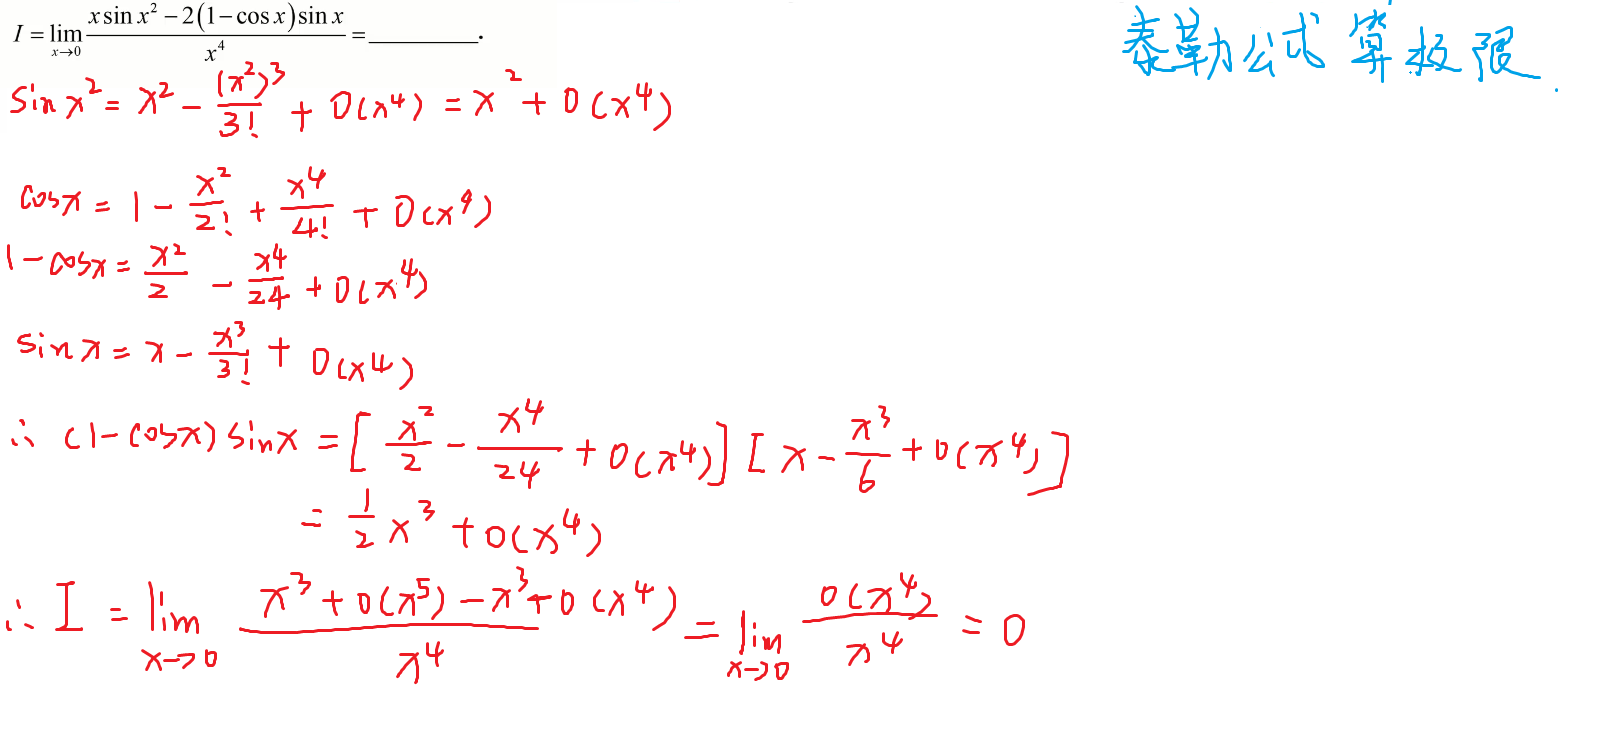 I = lim_{x→0} \frac{x sin x² − 2(1−cos x) sin x}{x⁴} = ________.
泰勒公式算极限.
sin x² = x² − \frac{(x²)³}{3!} + 0(x⁴) = x² + 0(x⁴)
cos x = 1 − \frac{x²}{2!} + \frac{x⁴}{4!} + 0(x⁴)
1 − cos x = \frac{x²}{2} − \frac{x⁴}{24} + 0(x⁴)
sin x = x − \frac{x³}{3!} + 0(x⁴)
∴ (1−cos x) sin x = [\frac{x²}{2} − \frac{x⁴}{24} + 0(x⁴)] [x − \frac{x³}{6} + 0(x⁴)]
= \frac{1}{2} x³ + 0(x⁴)
∴ I = lim_{x→0} \frac{x³ + 0(x⁵) − x³ + 0(x⁴)}{x⁴} = lim_{x→0} \frac{0(x⁴)}{x⁴} = 0